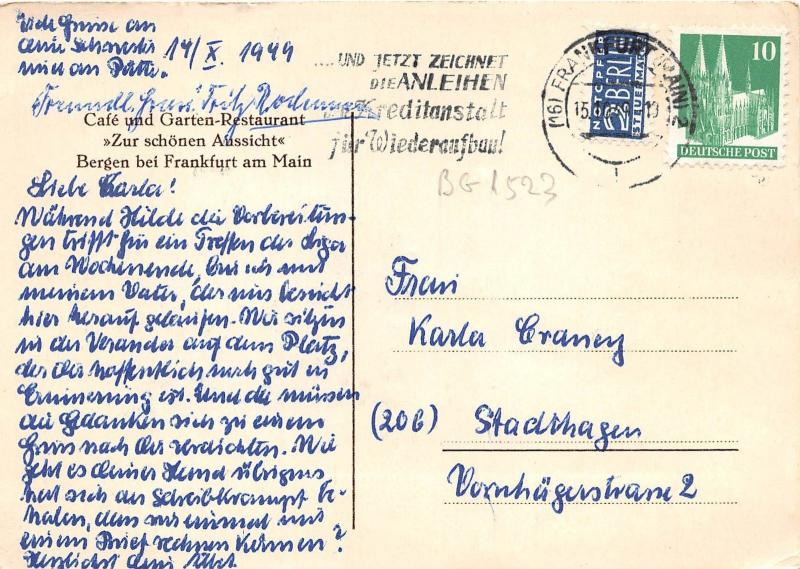 Viele Grüsse an
deine Schwester 14/X. 1949
und an Pütte.
Freundl. Gruss Fritz
Café und Garten-Restaurant
»Zur schönen Aussicht«
Bergen bei Frankfurt am Main
Liebe Karla!
Während Hilde die Vorbereitun-
gen trifft für ein Treffen der
am Wochenende, bin ich mit
meinem Vater, der uns besucht
hier herauf gelaufen. Wir sitzen
in der Veranda auf dem Platz,
der dir hoffentlich noch gut in
Erinnerung ist. Und da müssen
die Gedanken sich zu einem
Gruss nach dir verdichten. Wie
geht es deiner Hand übrigens
hat sich der Schreibkrampf be-
hoben, dass wir einmal mit
einem Brief rechnen können?
Herzlichst dein
....UND JETZT ZEICHNET
DIE ANLEIHEN
Kreditanstalt
für Wiederaufbau!
NOTOPFER
2 BERLIN
STEUERMARKE
(16) FRANKFURT (MAIN) 2
15.10.49
10
DEUTSCHE POST
BG 1523
Frau
Karla Craney
(20b) Stadthagen
Vornhägerstrasse 2